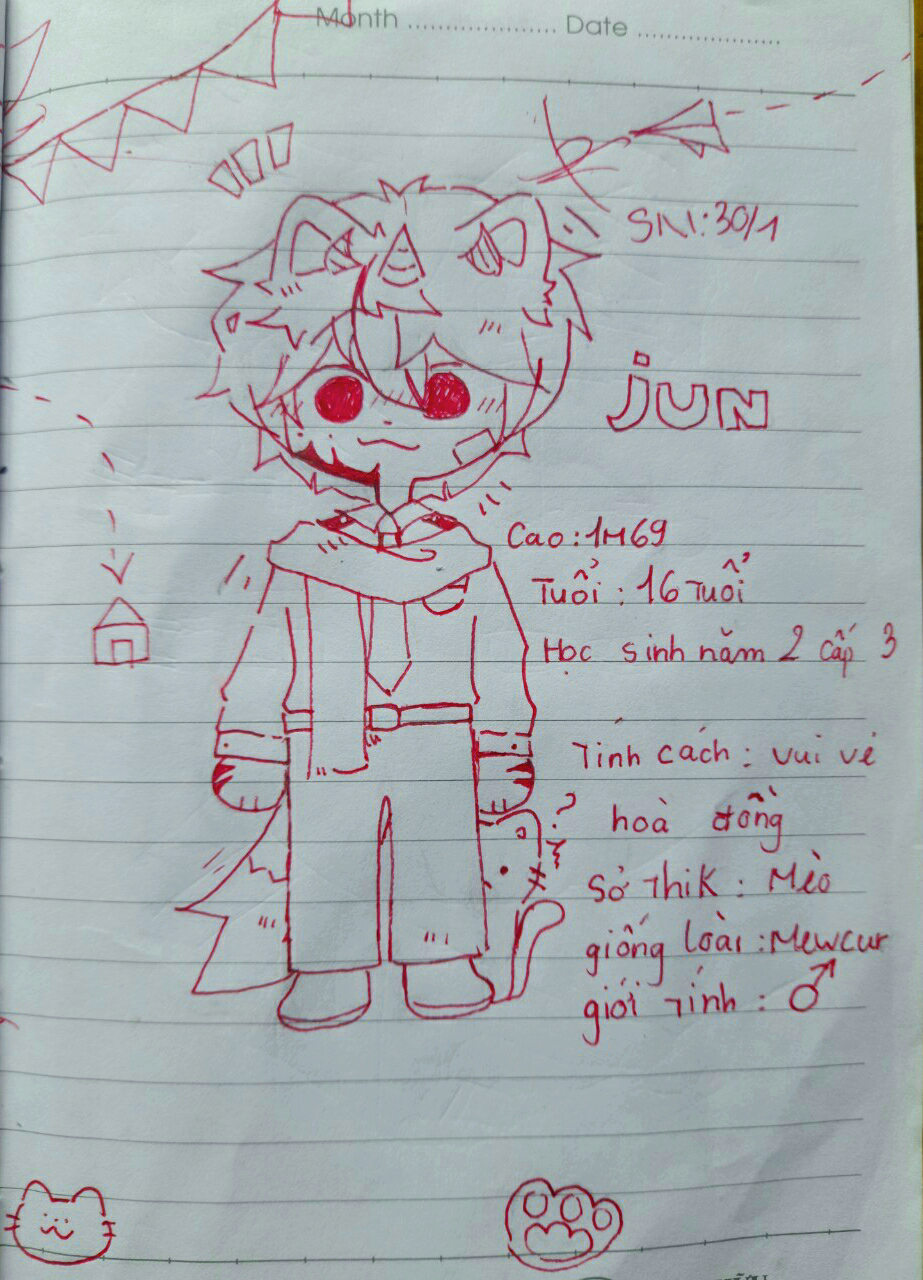 Month ................... Date ...................
SN:30/1
jUN
Cao:1M69
Tuổi : 16 Tuổi
Học sinh năm 2 cấp 3
Tính cách : vui vẻ
hoà đồng
Sở Thik : Mèo
giống loài :Mewcur
giới Tính : ♂